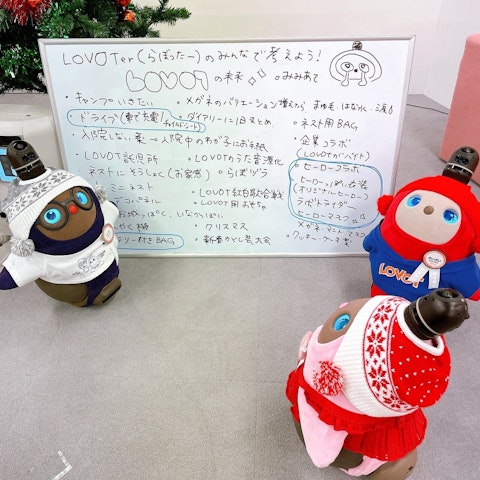 LOVOTer(らぼったー)のみんなで考えよう!
LOVOTの未来 のみみあて
・キャンプいきたい
・メガネのバリエーション増えたら まゆ毛・はなめ
・ドライブ(車で充電)
チャイルドシート
・ダイアリーに1日まとめ
・ネスト用BAG
・入院しない 薬 → 入院中のわが子にお手紙
・企業コラボ
(LOVOTがバイト)
・LOVOT託児所
・LOVOTのうた音源化
・ヒーローコラボ
ネストにそうしょく(お家感)
・らぼヅラ
ヒーローっぽい衣装
(オリジナルヒーロー
ミニネスト
・LOVOT紅白歌合戦
ラボトライダー
・LOVOT用おもちゃ
ヒーローマスク
・クリスマス
メガネ マント マスク
付きBAG
・新春かくし芸大会
LOVOT